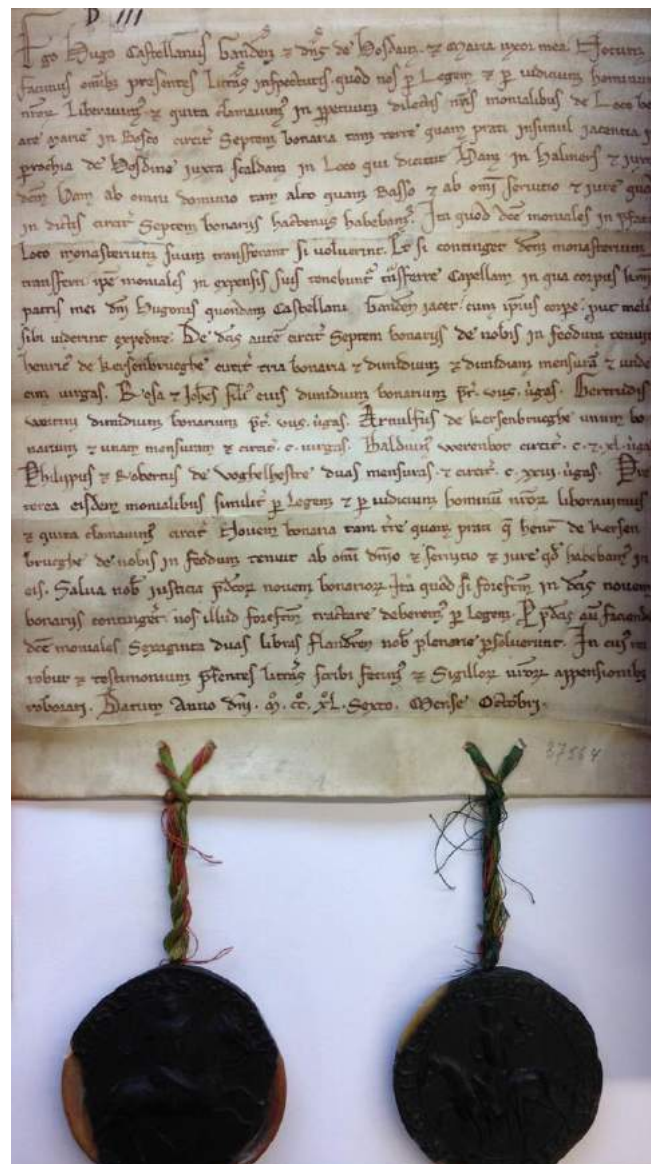 D III
Ego Hugo Castellanus Ganden̄ ⁊ dn̄s de Hosdain. ⁊ Maria uxor mea. Notum
facimus omib; presentes litt̄as inspecturis. quod nos p̲ Legem ⁊ p̲ iudicium hominum
nr̄oꝝ Liberauim᷒ ⁊ quita clamauim᷒ in p̲petuum dilectis nr̄is monialibus de Loco be
ate marie in Bosco circit᷑ Septem bonaria tam terre quam prati insimul jacentia in
p̲rochia de Hosdine iuxta scaldam in Loco qui dicitur Ham in Halmers ⁊
dc̄m Ham ab omni dominio tam alto quam Basso ⁊ ab om̄i seruitio ⁊ iure quod
in dictis circit᷑ Septem bonarijs hactenus habebam᷒. Ita quod dc̄e moniales in p̄fato
Loco monasterium suum transferant si uoluerint. Et si continget dc̄m monasterium
transferri ip̄e moniales in expensis suis tenebunt᷑ t̄nsferre Capellam in qua corpus kmi
patris mei dn̄i Hugonis quondam Castellani Ganden̄ jacet. cum ip̄ius corp̲e. prout meli᷒
sibi uiderint expedire. De dc̄is aute᷑ circit᷑ Septem bonarijs de nobis in feodum tenuit
henric᷒ de kersenbrueghe circit᷑ tria bonaria ⁊ dimidium ⁊ dimidiam mensurā ⁊ unde
cim uirgas. Rosa ⁊ Joh̄es fili᷒ eius dimidium bonarium p̄t. uirgas. Gertrudis
dimidium bonarium p̄t. uirgas. Arnulfus de kersenbrueghe unum bo
narium ⁊ unam mensuram ⁊ circit᷑. c. uirgas. Balduin᷒ werenbot circit᷑. c. ⁊. xl. ūgas
Philippus ⁊ Robertus de Voghelhestre duas mensuras. ⁊ circit᷑. c. xxiii. ūgas. Pre
terea eisdem monialibus similit᷑ p̲ Legem ⁊ p̲ iudicium hominū nr̄oꝝ liberauimus
⁊ quita clamauim᷒ circit᷑ Nouem bonaria tam t̄re quam prati q̄ henr̄ de kersen
brueghe de nobis in feodum tenuit ab om̄i dn̄io ⁊ seruitio ⁊ iure qd̄ habebam᷒ in
eis. Salua nob̄ iusticia p̄dc̄oꝝ nouem bonarioꝝ. Ita quod si forefc̄m in dc̄is nouem
bonarijs continget᷑ nos illud forefc̄m tractare deberem᷒ p̲ legem. P̲ p̄dc̄is aū faciendis
dc̄e moniales Sexaginta duas libras flandren̄ nob̄ plenarie p̲soluerunt. In cui᷒ rei
robur ⁊ testimonium p̄sentes litt̄as scribi fecim᷒ ⁊ Sigilloꝝ nr̄oꝝ appensionib;
roborari. Datum Anno dn̄i. M. CC. XL. Sexto. Mense Octobri.
37564